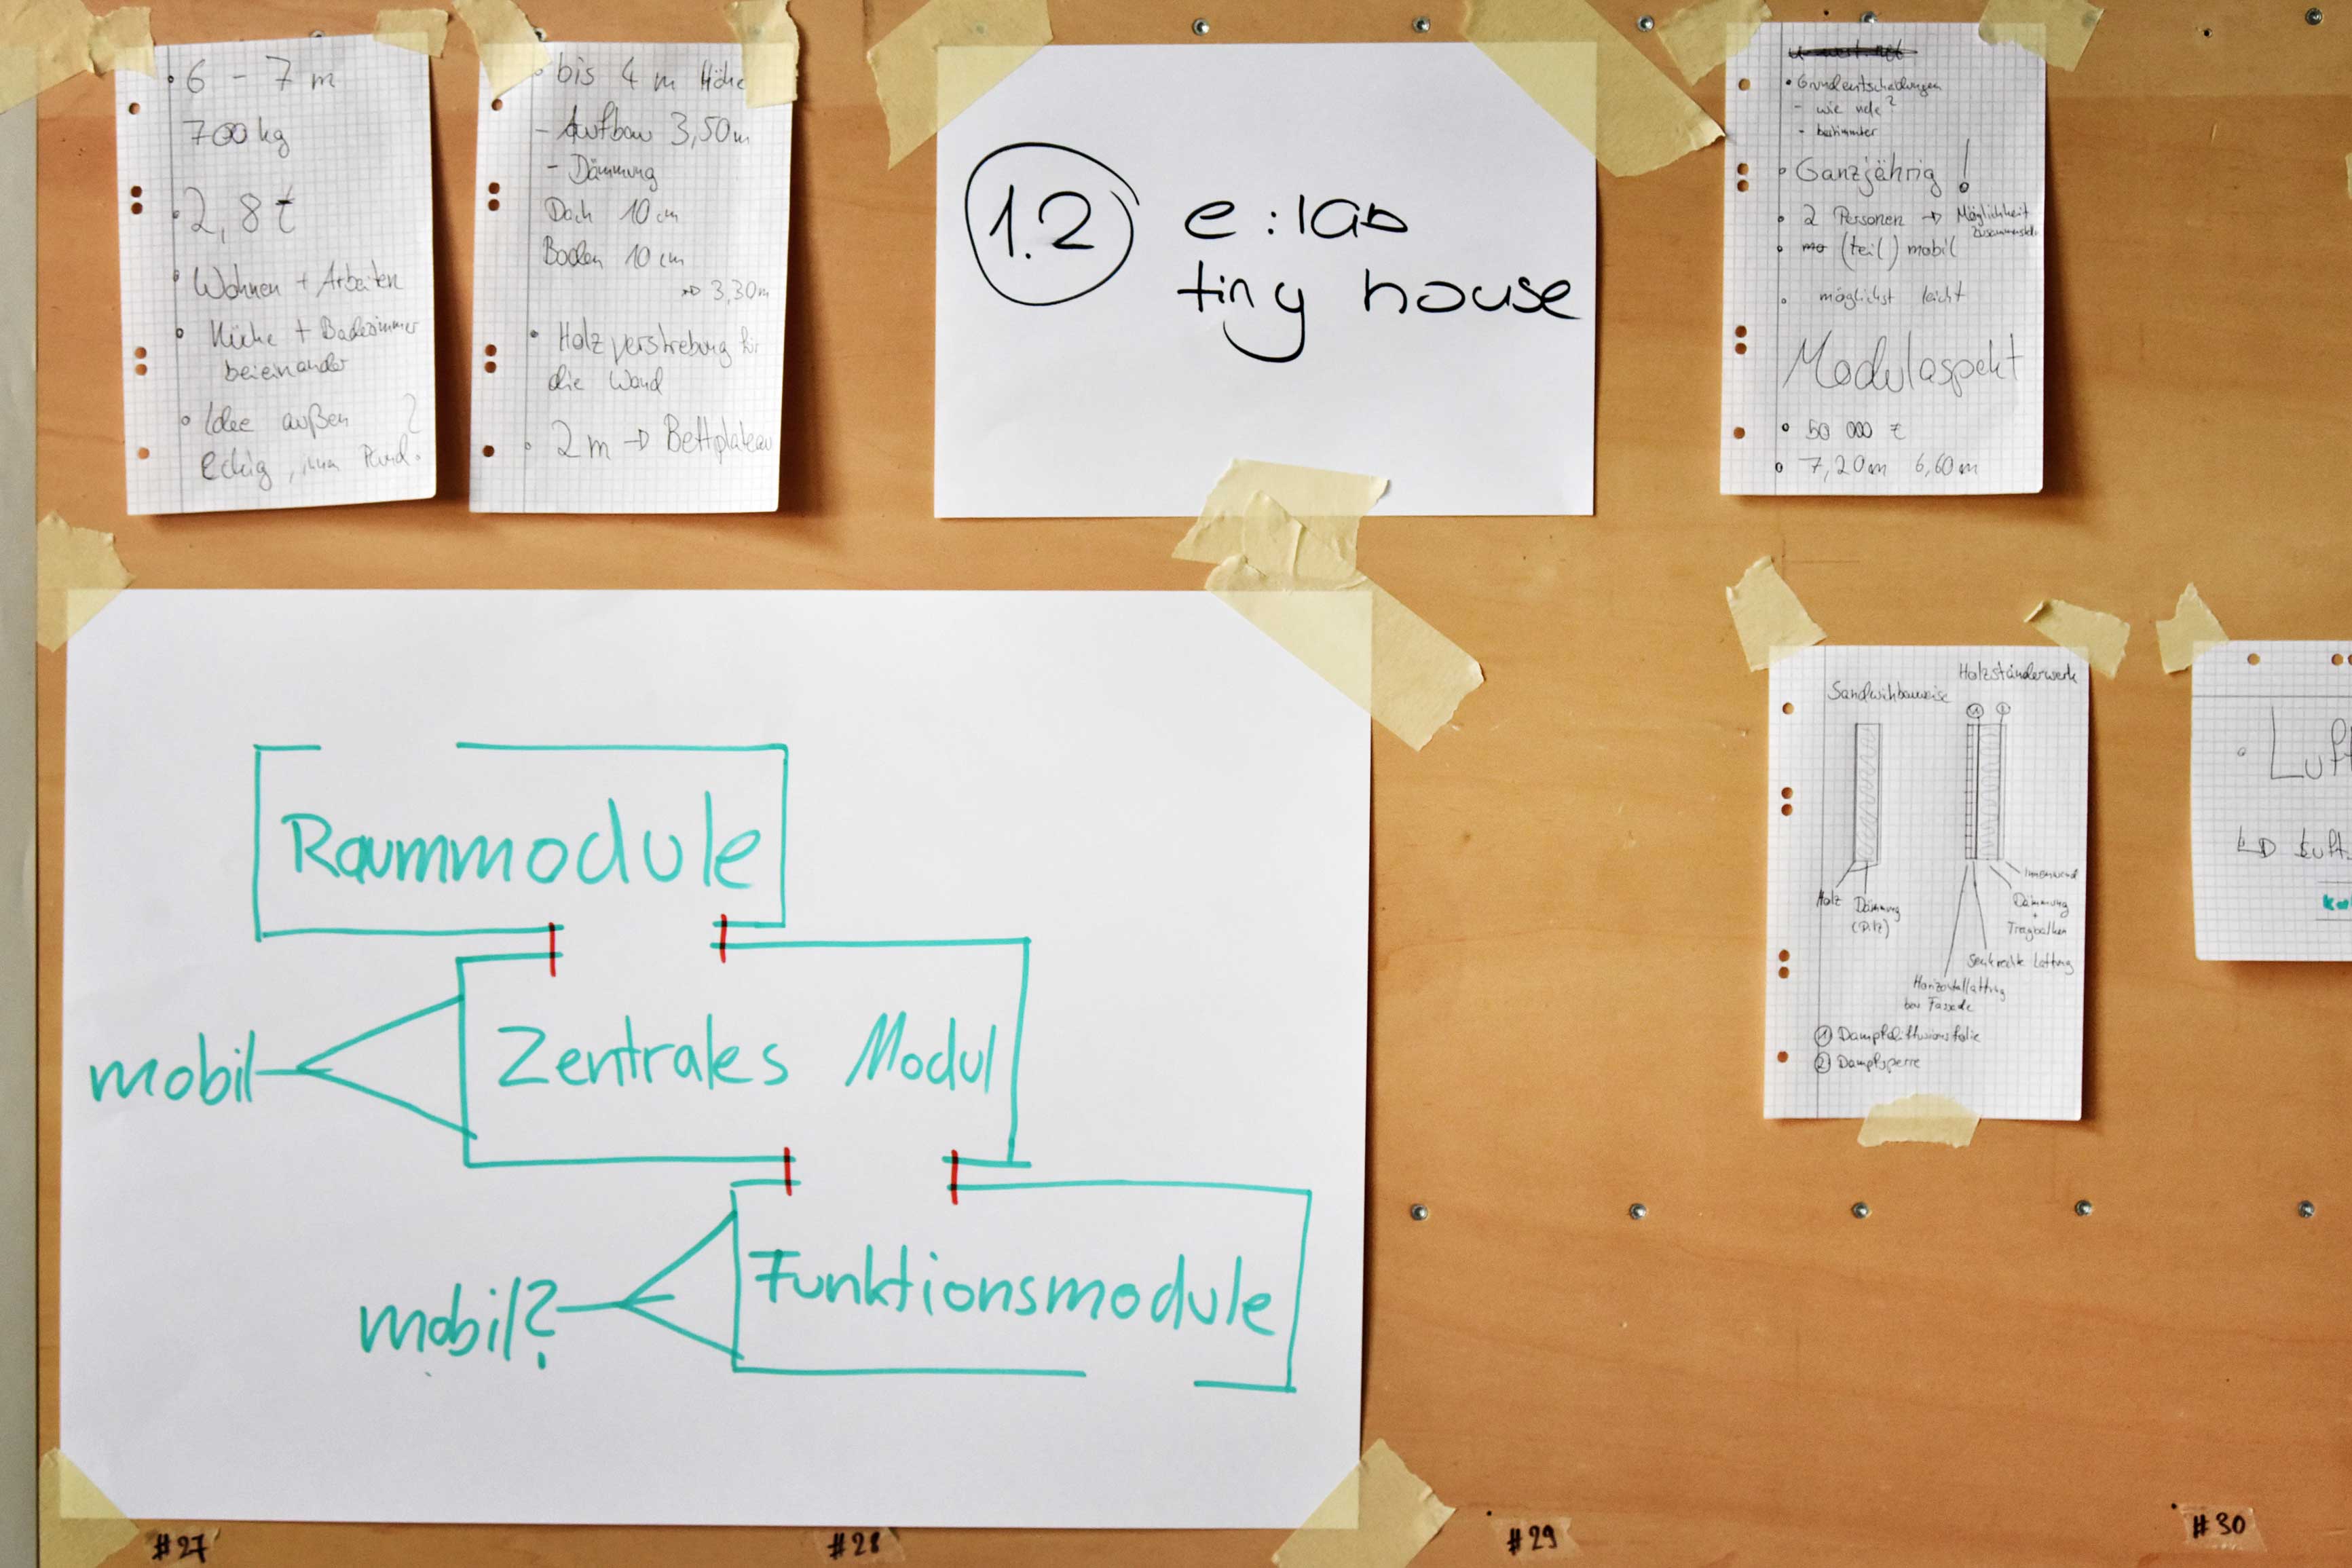 6 - 7 m
700 kg
2,8 t
Wohnen + Arbeiten
Küche + Badezimmer
beieinander
Idee außen
eckig, Rund?
bis 4 m Höhe
- Aufbau 3,50m
- Dämmung
Dach 10 cm
Boden 10 cm
3,30m
Holzverstrebung für
die Wand
2 m → Bettplateau
1.2 e:lab
tiny house
Grundentscheidungen
- wie viele?
- bestimmter
Ganzjährig !
2 Personen → Möglichkeit
(teil) mobil
möglichst leicht
Modulaspekt
50 000 €
7,20m 6,60m
Raummodule
mobil
Zentrales Modul
mobil?
Funktionsmodule
Holzständerwerk
Sandwichbauweise
1 2
Innenwand
Holz
Dämmung
Dämmung
+
Tragbalken
senkrechte Lattung
Horizontallattung
bei Fassade
1 Dampfdiffusionsfolie
2 Dampfsperre
#27
#28
#29
#30